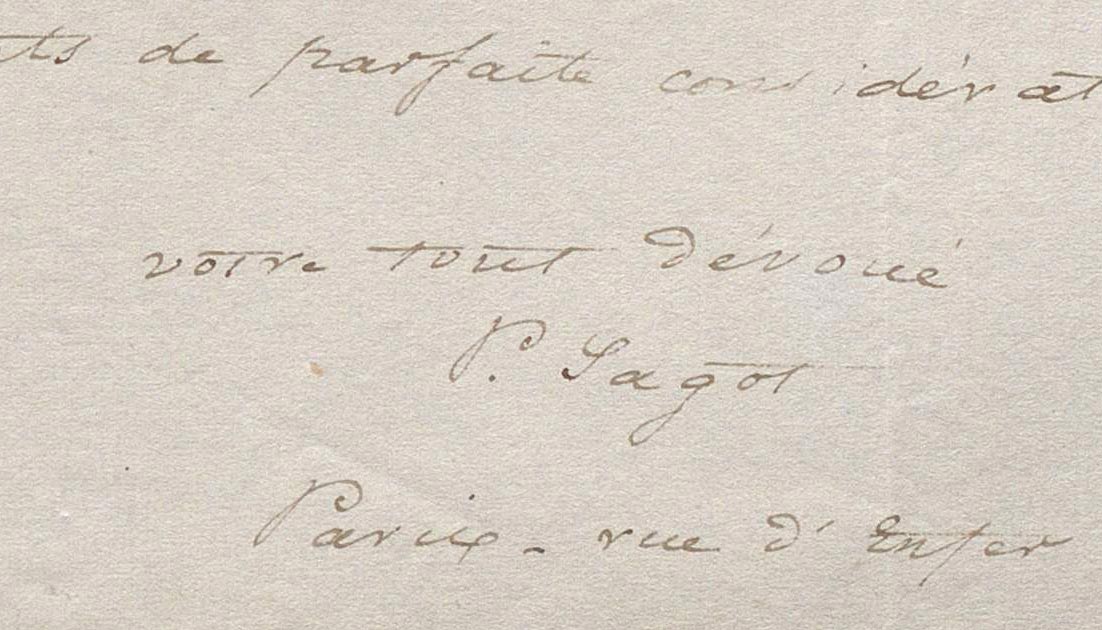 ts de parfaite considérat
votre tout dévoué
P. Sagot
Paris - rue d'Enfer